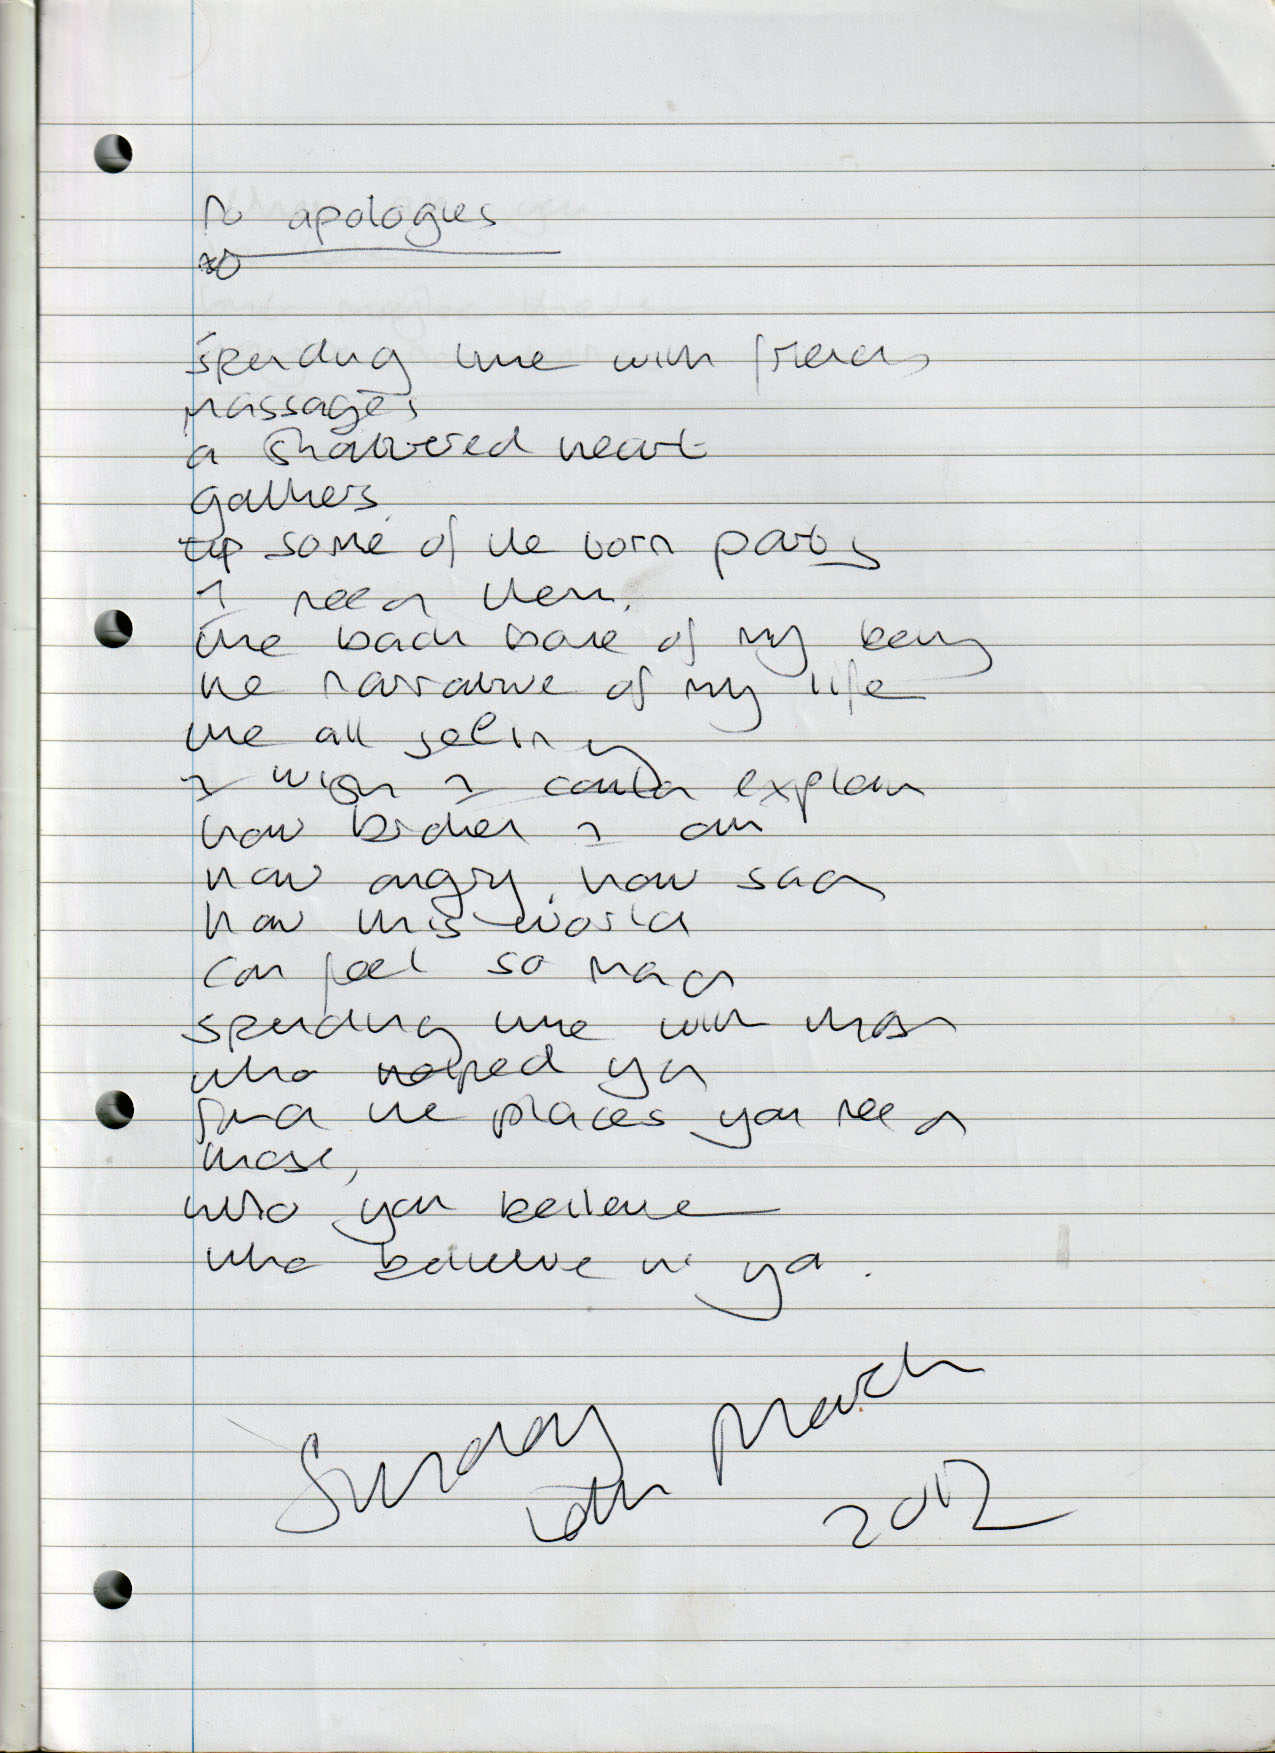 No apologies
spending time with friends
massages
a shattered heart
gathers
up some of the torn parts
I need them.
the back bone of my being
the narrative of my life
the all
I wish I could explain
how broken I am
how angry, how sad
how this world
can feel so mad
spending time with those
who helped you
find the places you need
most,
who you believe
who believe in you.
Sunday March
2012